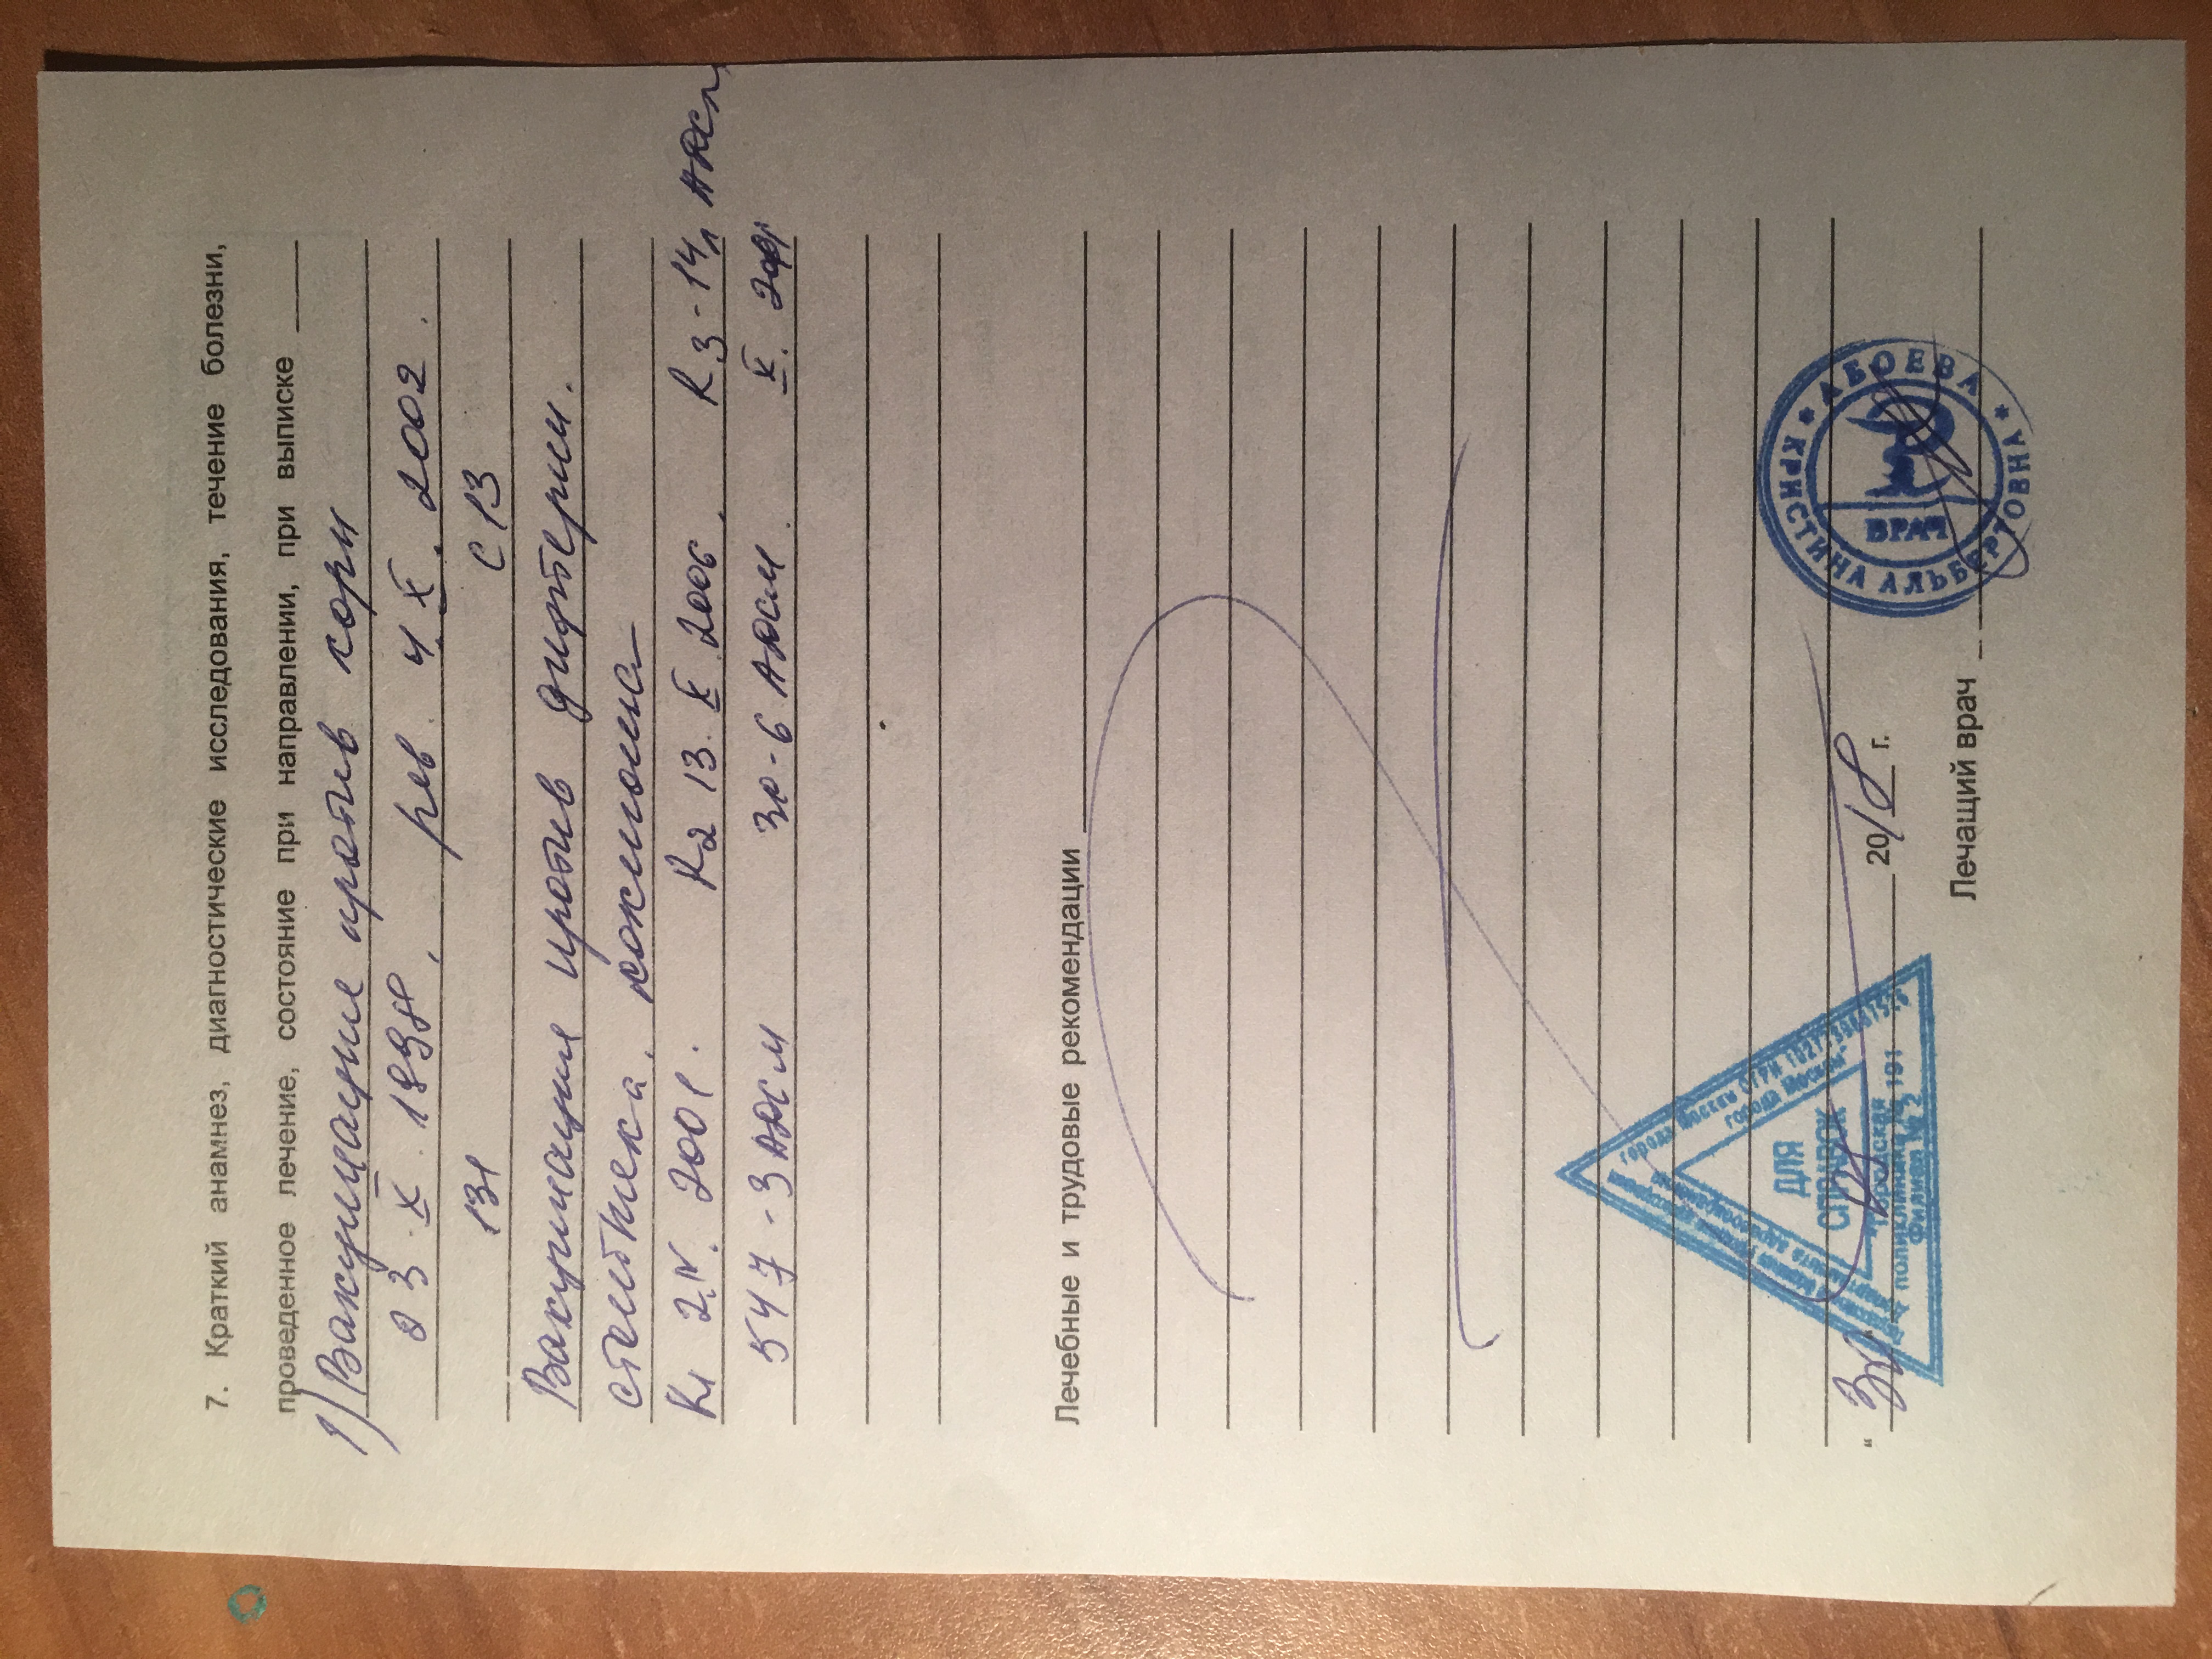 7. Краткий анамнез, диагностические исследования, течение болезни,
проведенное лечение, состояние при направлении, при выписке
1) Вакцинация против кори
3. X. 1998, рев. 4. X. 2002.
131 с 13
Вакцинация против дифтерии.
столбняка, коклюша
R1 2.IV. 2001. R2 13. X 2006. R3-14,
547-3 АДСМ 30-6 АДСМ. X.
Лечебные и трудовые рекомендации
" 2018 г.
Лечащий врач
АБОЕВА * КРИСТИНА АЛЬБЕРТОВНА *
ВРАЧ
города Москвы ОГРН
города Москвы"
ДЛЯ
СПРАВОК
"Городская
поликлиника № 191
Филиал № 2